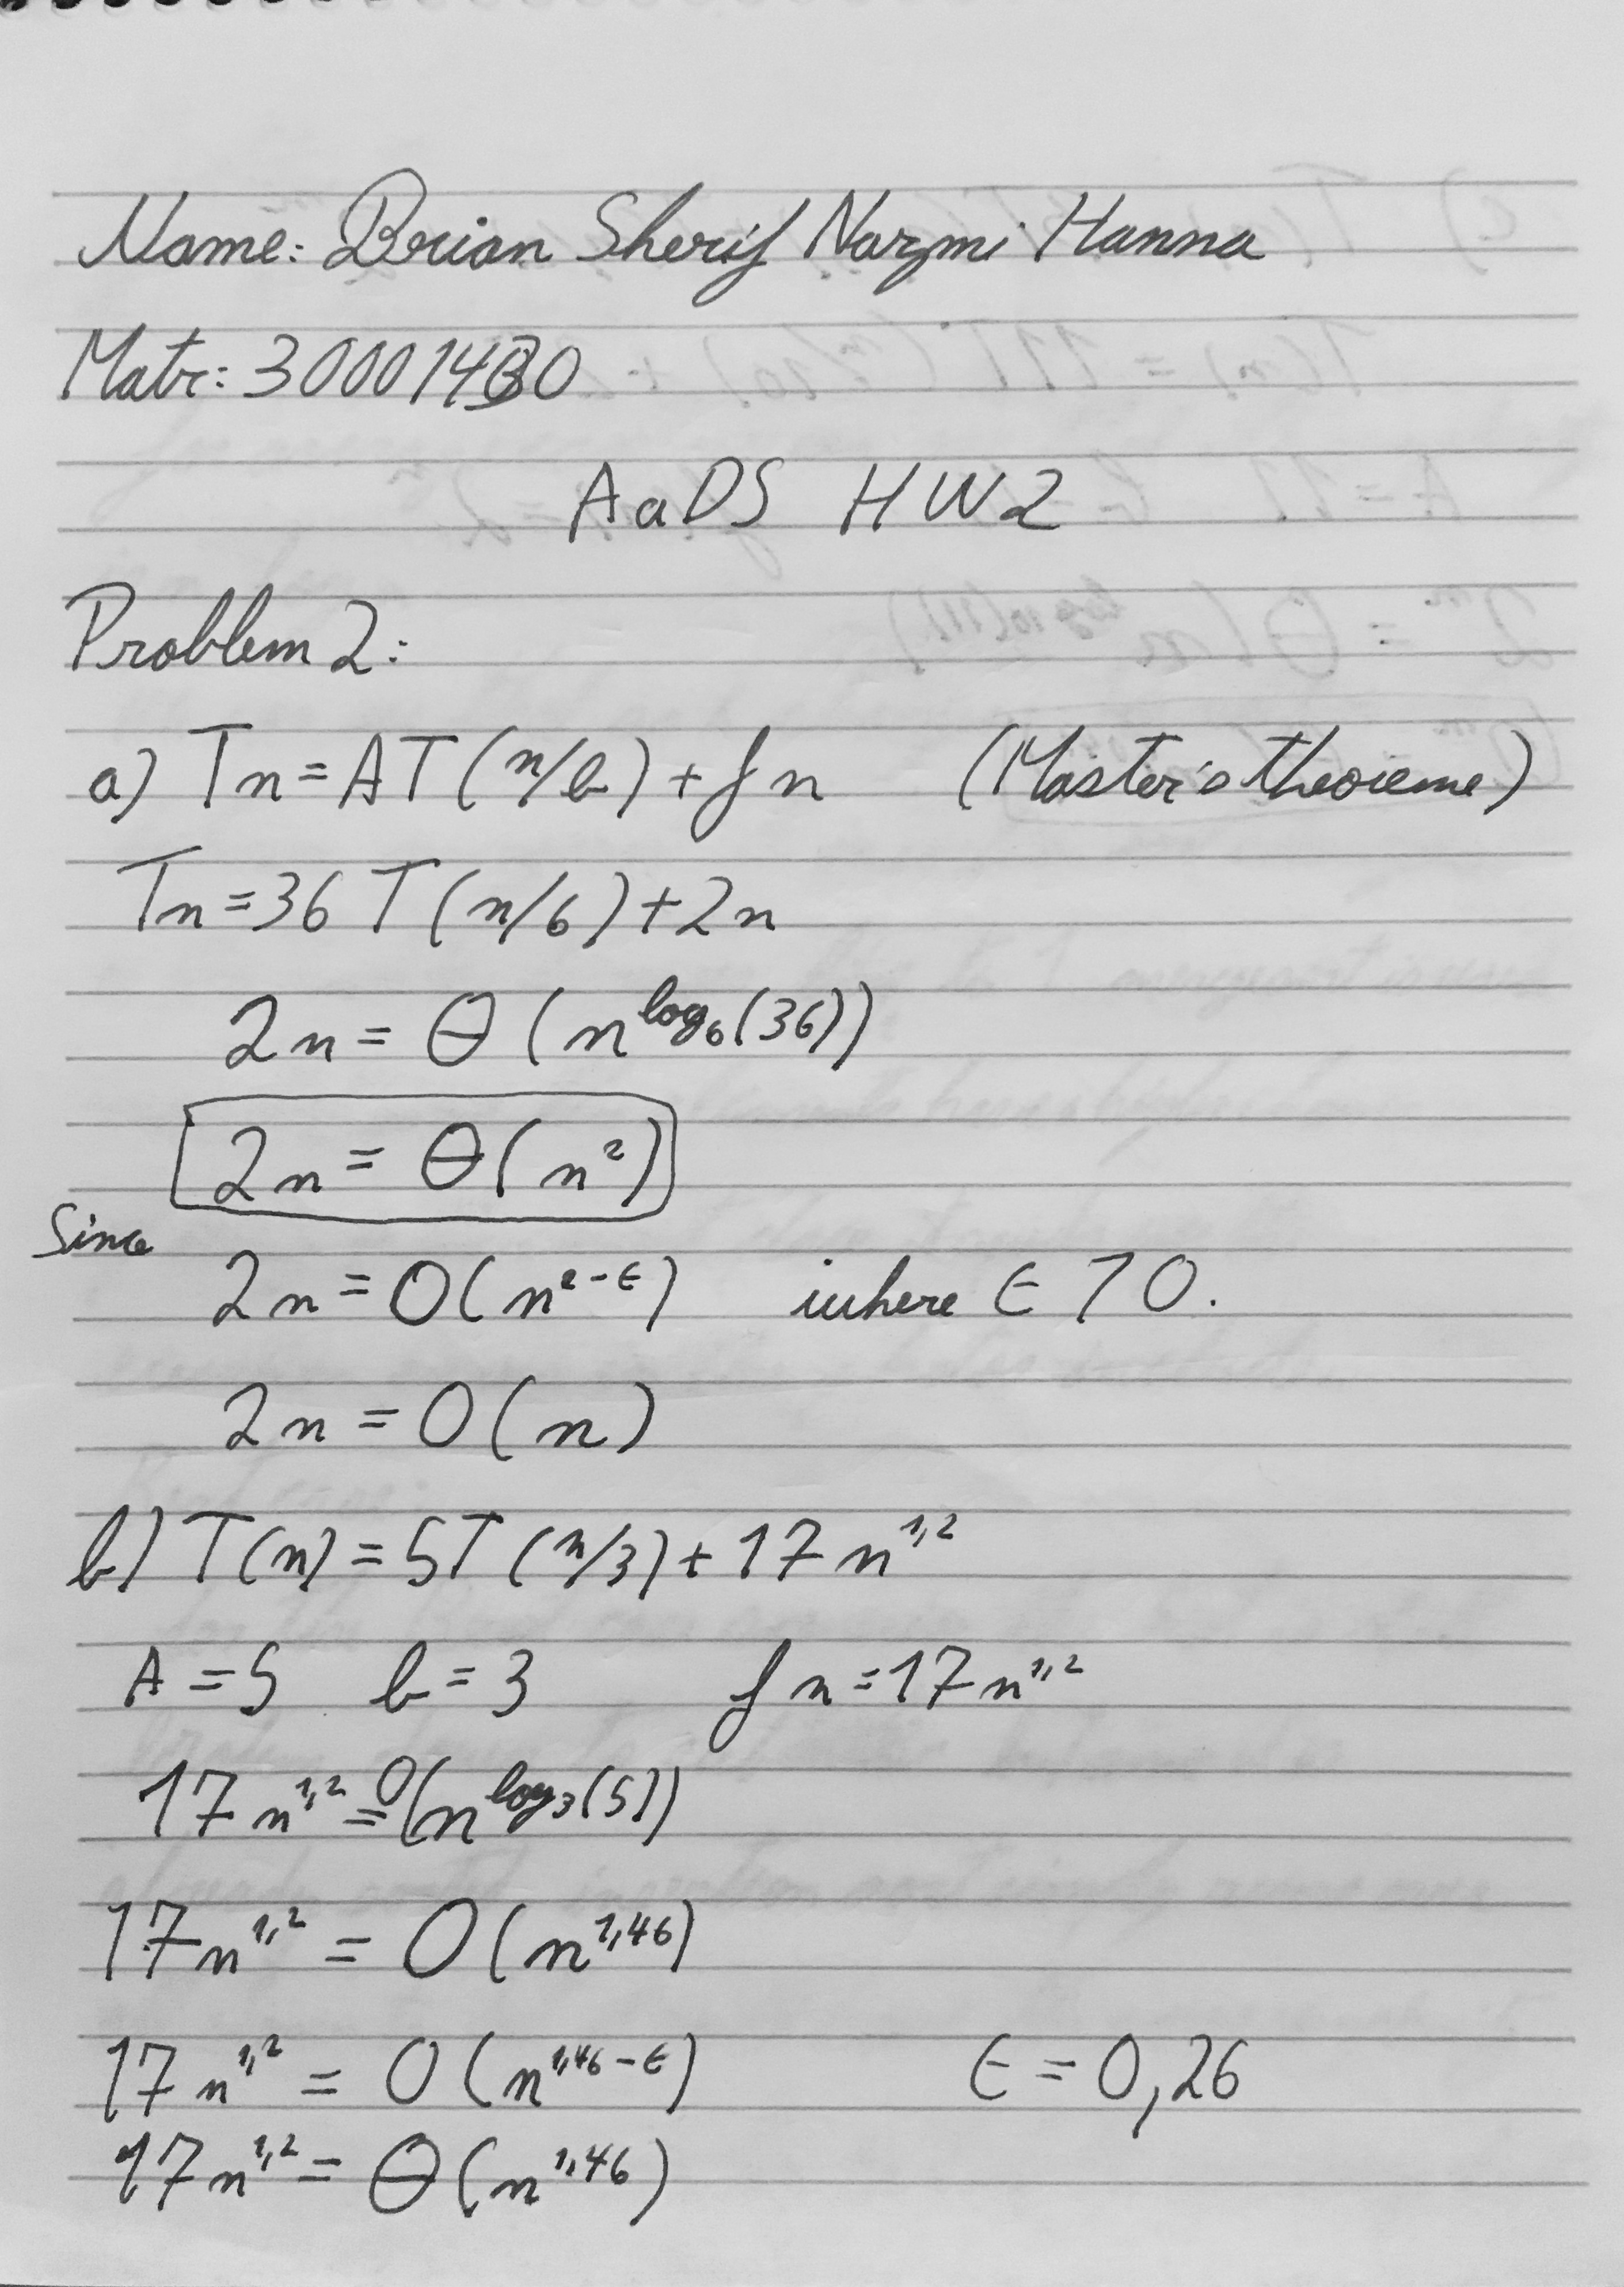 Name: Brian Sherif Nazmi Hanna
Matr: 30001430
AaDS HW2
Problem 2:
a) Tn = AT(n/b) + fn (Master's theoreme)
Tn = 36 T(n/6) + 2n
2n = Θ(n^log₆(36))
2n = Θ(n²)
Since
2n = O(n^2-ϵ) where ϵ > 0.
2n = O(n)
b) T(n) = 5T(n/3) + 17n^1,2
A = 5 b = 3 fn = 17n^1,2
17n^1,2 = O(n^log₃(5))
17n^1,2 = O(n^1,46)
17n^1,2 = O(n^1,46-ϵ) ϵ = 0,26
17n^1,2 = Θ(n^1,46)